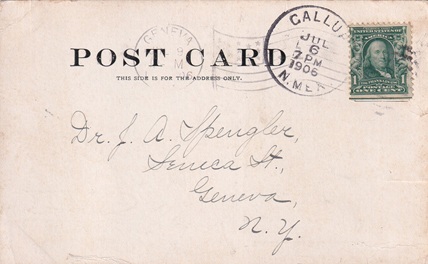 GENEVA
9
M
GALLUP
JUL
6
7 PM
1906
N.MEX
UNITED STATES OF AMERICA
POSTAGE
1 ONE CENT 1
POST CARD.
THIS SIDE IS FOR THE ADDRESS ONLY.
Dr. J. A. Spengler,
Seneca St.,
Geneva,
N. Y.